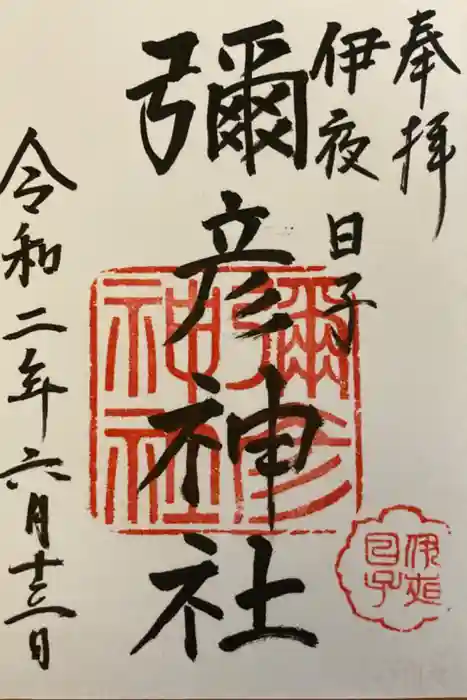 奉拝
伊夜日子
彌彦神社
令和二年六月十三日
彌彦
神社
伊夜
日子